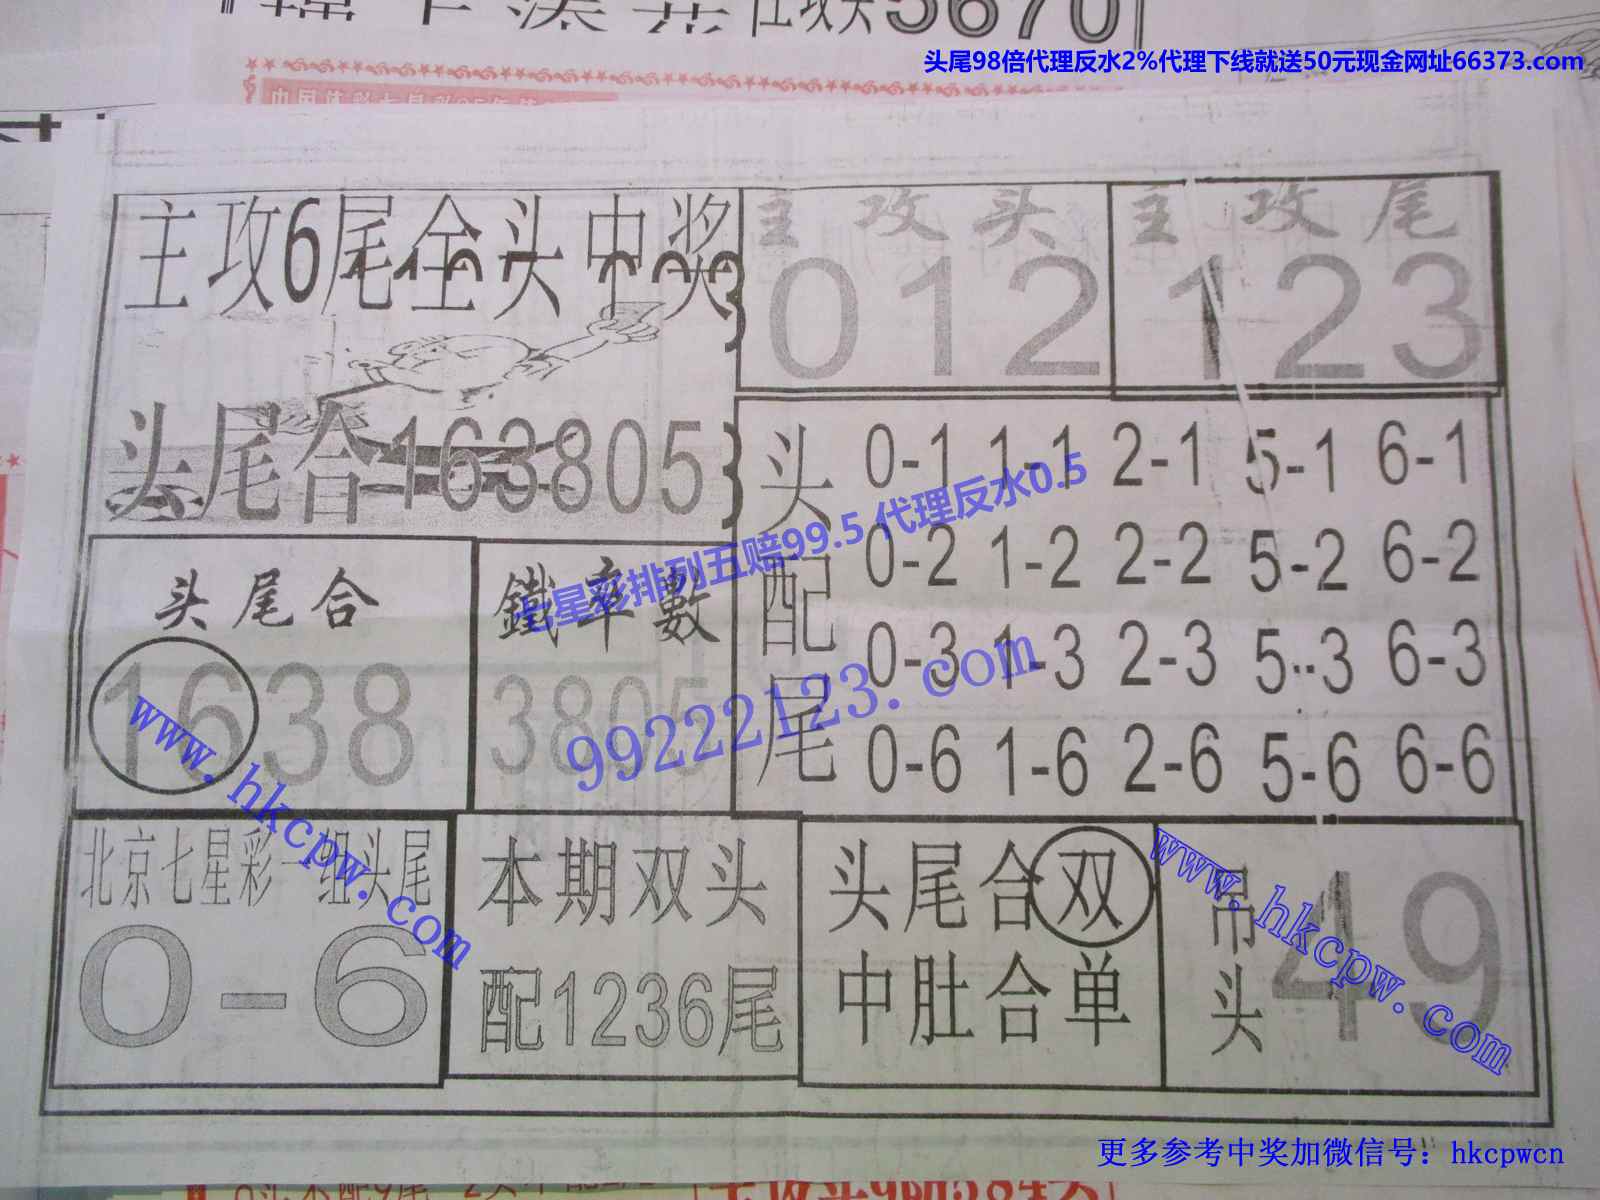 主攻头5670
头尾98倍代理反水2%代理下线就送50元现金网址66373.com
主攻6尾全头中奖
主攻头
012
主攻尾
123
头尾合163805
头配尾
0-1 1-1 2-1 5-1 6-1
0-2 1-2 2-2 5-2 6-2
0-3 1-3 2-3 5-3 6-3
0-6 1-6 2-6 5-6 6-6
七星彩排列五赔99.5 代理反水0.5
99222123.com
头尾合
1638
鐵率數
3805
www.hkcpw.com
北京七星彩一组头尾
0-6
本期双头
配1236尾
头尾合双
中肚合单
吊头
49
www.hkcpw.com
更多参考中奖加微信号：hkcpwcn